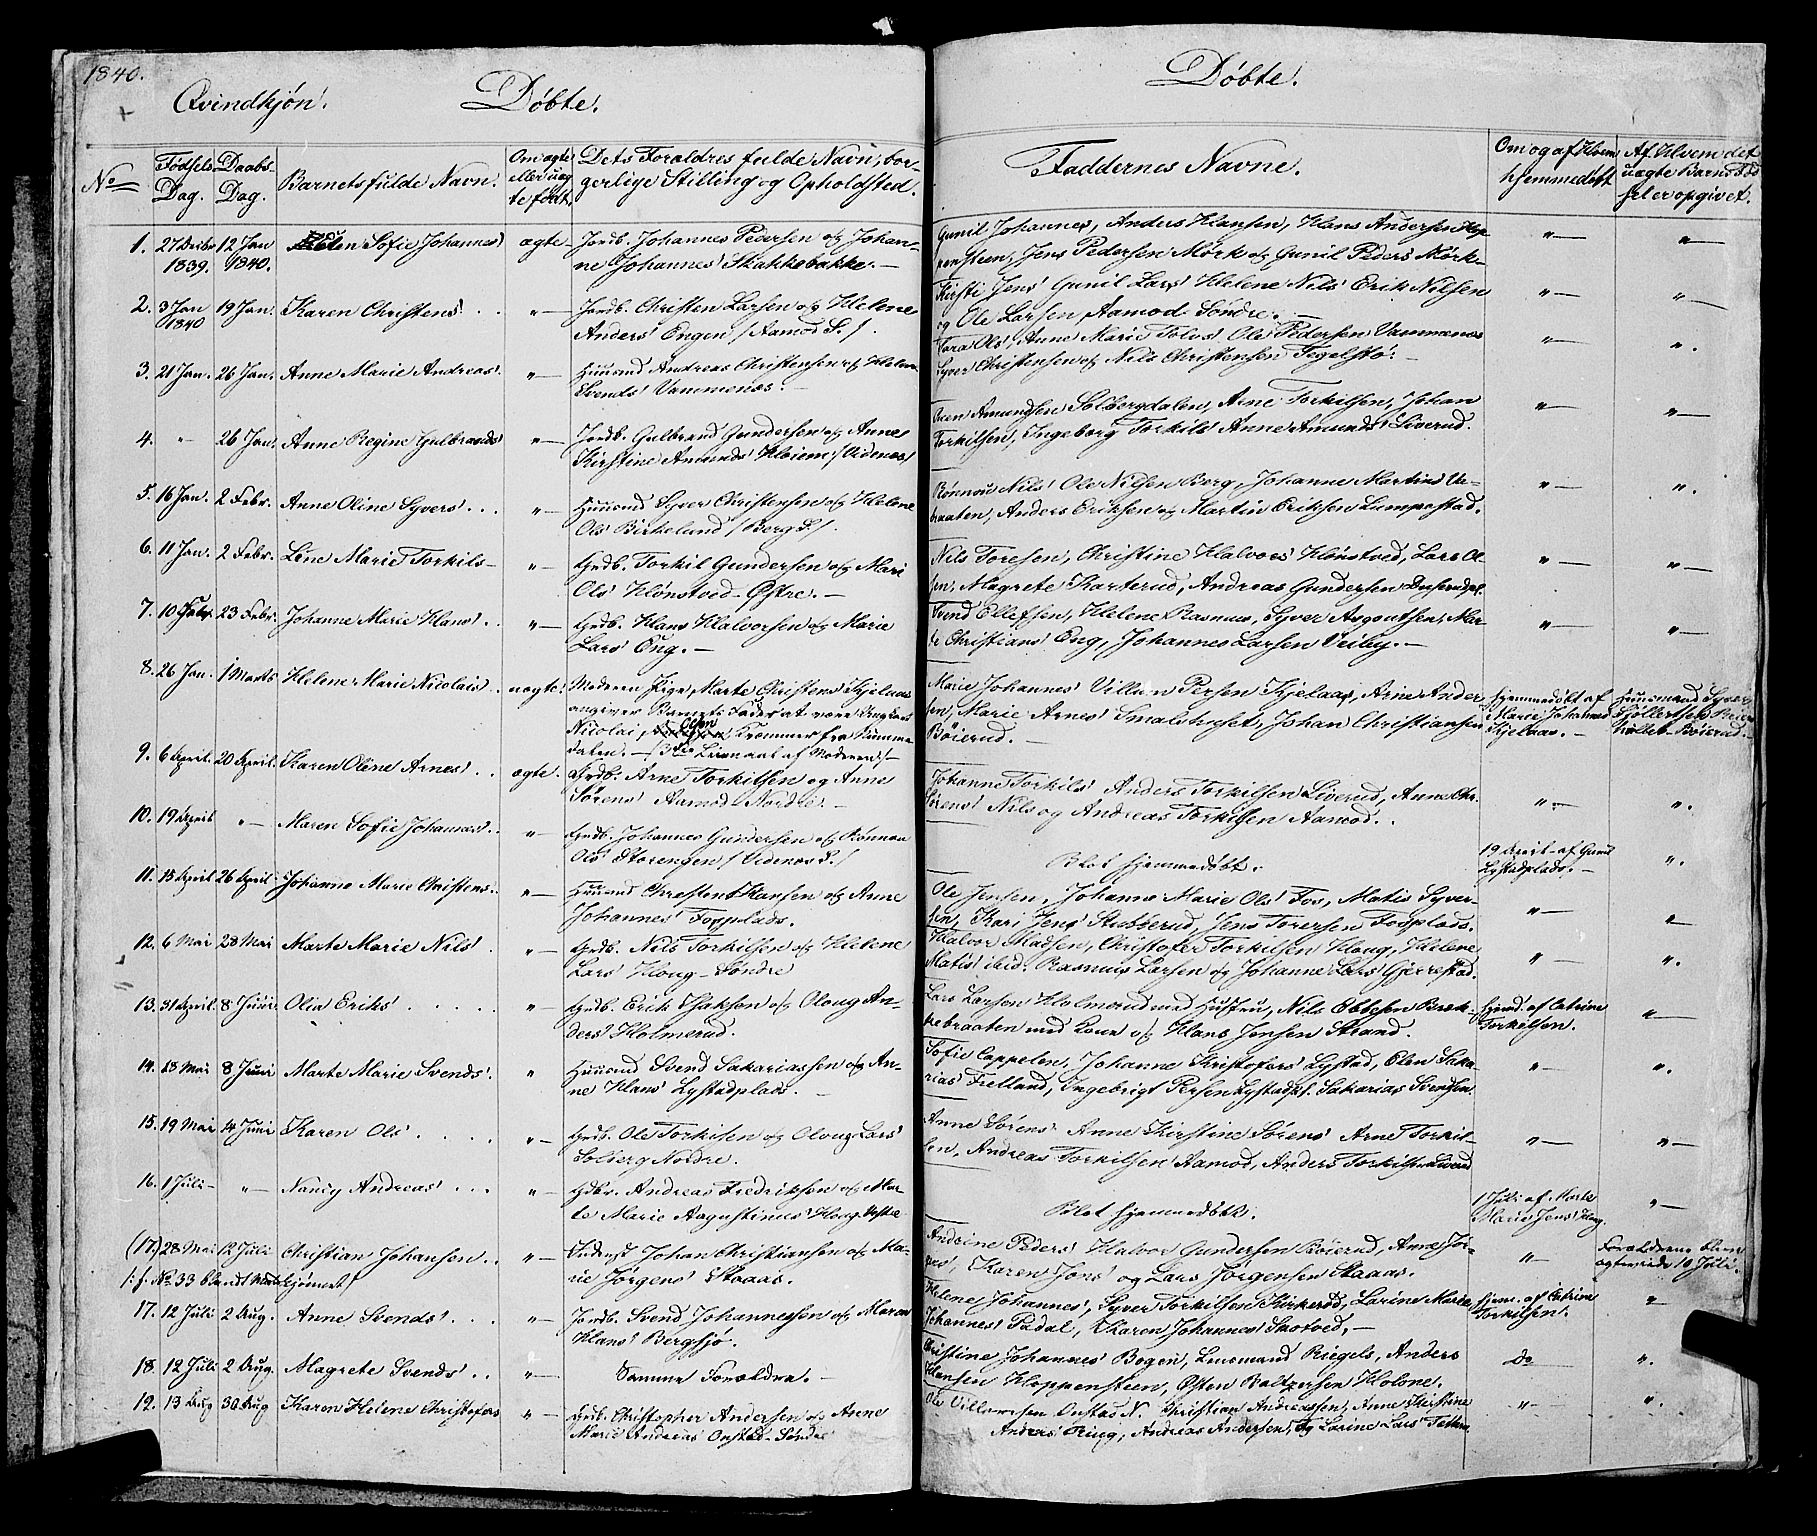 1840.
Qvindkjøn. Døbte.
No Fødsels Dag. Daabs- Dag. Barnets fulde Navn. Om ægte eller uæg te født. Dets Forældres fulde Navn, bor-
gerlige Stilling og Opholdsted.
1. 27 Decbr 12 Jan Sofie Johannes' ægte- Jordb. Johannes Pedersen og Johan-
1839. 1840. ne Johannes' Skakkebakke.-
2. 3 Jan 19 Jan. Karen Christens' . . "- Jordb. Christen Larsen og Helene
1840 Anders' Engen /Aamod S./.
3. 21 Jan. 26 Jan. Anne Marie Andreas'. "- Huusmd Andreas Christensen og Helene
Svends' Vammenæs.-
4. " 26 Jan. Anne Regine Gulbrands' "- Jordb. Gulbrand Gundersen og Anne
Kirstine Amunds' Hoiem /Videnæs/
5. 16 Jan. 2 Febr. Anne Oline Syvers' . . . "- Huusmd Syver Christensen og Helene
Ols' Birkelund /Berg S./.
6. 11 Jan. 2 Febr. Line Marie Torkils- "- Grdb. Torkil Gundersen og Mari
Ols' Hønstved Østre.-
7. 10 Febr. 23 Febr. Johanne Marie Hans' . . "- Grdb. Hans Halvorsen og Marie
Lars' Eng.-
8. 26 Jan. 1 Marts Helene Marie Nicolais' . . uægte! Moderen Pige Marte Christens' Kjelaas
angiver Barnets Fader at være Ungkarl
Nicolai Olsen Trommer fra Numme-
dalen.- /3die Leiermaal af Moderen/-
9. 6 April. 20 April. Karen Oline Arnes' . . ægte. Grdb. Arne Torkilsen og Anne
Sørens' Aamod Nordre.-
10. 19 April "- Maren Sofie Johannes' . . "- Grdb. Johannes Gundersen og Rønnau
Ols' Storengen /Videnæs S./
11. 13 April 26 April Johanne Marie Christens'. . "- Huusmd Christen Hansen og Anne
Johannes' Fosplads.
12. 6 Mai 28 Mai Marte Marie Nils' . "- Grdb. Nils Torkilsen og Helene
Lars' Houg-Søndre
13. 31 April. 8 Juni. Olia Eriks' . . . . "- Grdb. Erik Isaksen og Oloug An-
ders' Holmerud.
14. 23 Mai 8 Juni Marte Marie Svends'. " Huusmd Svend Sakariassen og An-
ne Hans' Lystadplads.-
15. 19 Mai 14 Juni Karen Ols' . . . . "- Grdb. Ole Torkilsen og Oloug Lars'
Solberg Nordre.
16. 1 Juli- "- Nancy Andreas' . . . "- Grdbr. Andreas Fredriksen og Mar-
te Marie Augustinus' Houg Vestre
(17) 28 Mai 12 Juli Christian Johansen . . "- Indenst Johan Christiansen og Ma-
/: f. No 33 blandt Mandkjønnet / rie Jørgens' Skaaas.
17. 12 Juli 2 Aug. Anne Svends' . . . "- Jordb. Svend Johannessen og Maren
Hans' Bergsjø.
18. 12 Juli 2 Aug. Magrete Svends' . . "- Samme Forældre.-
19. 13 Aug 30 Aug Karen Helene Christofers "- Grdb. Christopher Andersen og Anne
Marie Andreas' Onstad-Søndre
Døbte.
Faddernes Navne. Om og af Hvem hjemmedøbt Af Hvem det uægte Barns Fødsel er opgivet.
Gunil Johannes, Anders Hansen, Hans Andersen Klop-
pensteen, Jens Pedersen Mørk og Gunil Peders Mørk- "- "-
Kirsti Jens' Gunil Lars' Helene Nils' Erik Nilsen
og Ole Larsen Aamod Søndre.- "- "-
Tora Ols', Anne Marie Tolvs' Ole Pedersen Vammenæs
Syver Christensen og Nils Christensen Tegelstø.- "- ".
Even Amundsen Solbergdalen, Arne Torkilsen, Johan
Torkilsen, Ingeborg Torkils' Anne Amunds' Liverud. "- "-
Rønnou Nils' Ole Nilsen Borg, Johanne Martins Ve-
braaten, Anders Eriksen og Martin Eriksen Lumpestad. "- ".
Nils Toresen, Christine Halvors' Hønstved, Lars Ol-
sen, Magrete Karterud, Andreas Gundersen "- "-
Svend Ellefsen, Helene Rasmus, Syver Asgoutsen, Mar-
te Christians' Eng, Johannes Larsen Veiby.- "- "-
Marie Johannes' Villum Persen Kjelaas, Arne Ander-
sen, Marie Arnes' Smalstuset, Johan Christiansen
Bøierud.- Hjemmedøbt af Marie Johannes Kjelaas.- Huusmand Syver
Bøierud.-
Johanne Torkils' Anders Torkilsen Liverud, Anne Chr.
Sørens' Nils og Andreas Torkilsen Aamod. "- ".
Blot hjemmedøbt. 19 April af Gunil Lystadplads.- ".
Ole Jensen, Johanne Marie Ols' Fos, Matis Syver-
sen, Kari Jens' Stubberud, Jens Torersen Fosplads. "- "-
Halvor Madsen, Christofer Torkilsen Houg, Helene
Matis' ibid. Rasmus Larsen og Johanne Lars' Gjerrestad. "- ".
Lars Larsen Holmerud med Hustru, Nils Ebbesen Bræk-
kebraaten med Kone og Hans Jensen Strand. Hjemd. af Catrine Torkilsen. "-
Sofie Cappelen, Johanne Kristofers Lystad, Elen Saka-
rias' Fretland, Ingebrigt Persen Lystadpl. Sakarias Svendsen "- ".
Anne Sørens' Anne Kirstine Sørens' Arne Torkil-
sen, Andreas Torkilsen Aamod, Anders Torkilsen Liverud "- "-
Blot hjemmedøbt. 1 Juli af Marte Marie Jens' Houg. "-
Andrine Peders' Halvor Gundersen Bøierud, Anne Jør-
gens', Karen Jons' og Lars Jørgensen Skaaas. "- Forældrene bleve ægteviede 10 Juli.
Helene Johannes', Syver Torkilsen Kirkerød, Larine Marie
Johannes' Padal, Karen Johannes' Smotved.- Hjem. af Catrine Torkilsen. "
Christine Johannes' Bogen, Lensmand Riegels, Anders
Hansen Kloppensteen, Østen Baltzersen Holone. do ".
Ole Villumsen Onstad N. Christian Andreassen, Anne Kirstine
Anders' Ruug, Andreas Andersen, og Larine Lars' "- ".